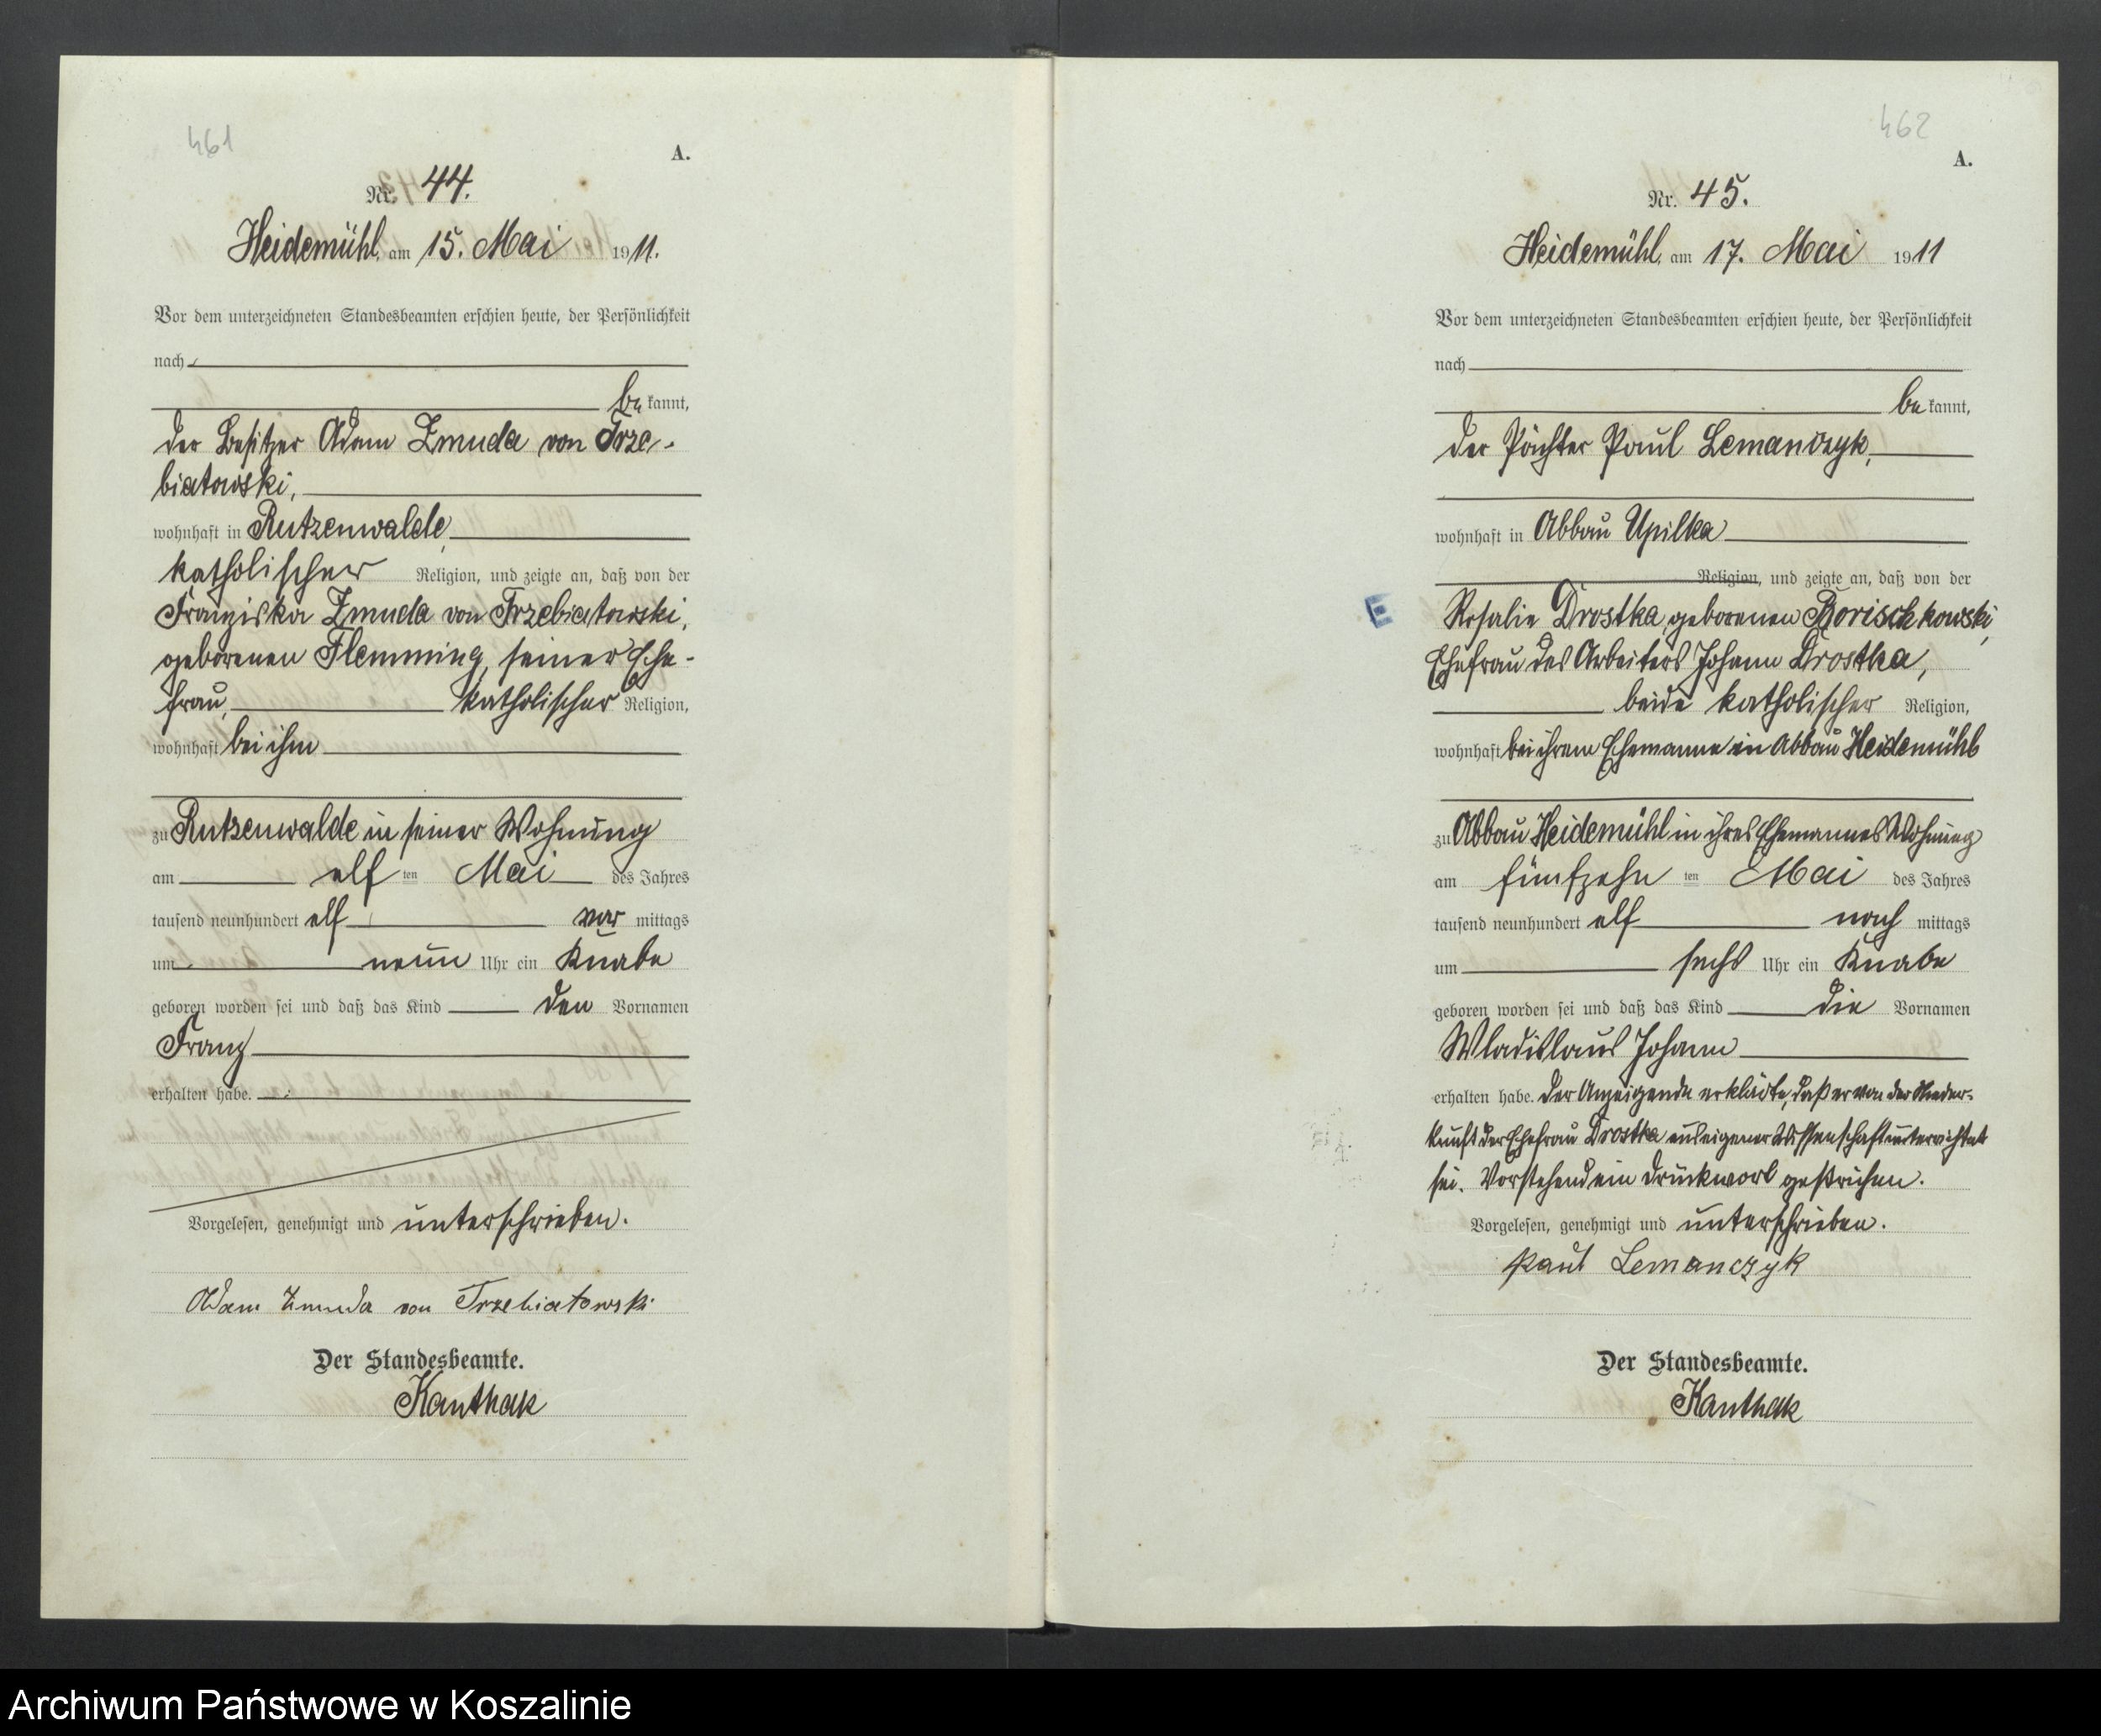 461
A.
Nr. 44.
Heidemühl, am 15. Mai 1911.
Vor dem unterzeichneten Standesbeamten erschien heute, der Persönlichkeit
nach
be kannt,
der Besitzer Adam Zmuda von Trze-
biatowski,
wohnhaft in Rutzenwalde,
katholischer Religion, und zeigte an, daß von der
Franziska Zmuda von Trzebiatowski,
geborenen Flemming, seiner Ehe-
frau, katholischer Religion,
wohnhaft bei ihm
zu Rutzenwalde in seiner Wohnung
am elf ten Mai des Jahres
tausend neunhundert elf vor mittags
um neun Uhr ein Knabe
geboren worden sei und daß das Kind den Vornamen
Franz
erhalten habe.
Vorgelesen, genehmigt und unterschrieben.
Adam Zmuda von Trzebiatowski
Der Standesbeamte.
Kanthak
462
A.
Nr. 45.
Heidemühl, am 17. Mai 1911
Vor dem unterzeichneten Standesbeamten erschien heute, der Persönlichkeit
nach
be kannt,
der Pächter Paul Lemanczyk,
wohnhaft in Abbau Upilka
Religion, und zeigte an, daß von der
E
Rosalie Drostka, geborenen Borischkowski,
Ehefrau des Arbeiters Johann Drostka,
beide katholischer Religion,
wohnhaft bei ihrem Ehemanne in Abbau Heidemühl
zu Abbau Heidemühl in ihres Ehemannes Wohnung
am fünfzehn ten Mai des Jahres
tausend neunhundert elf nach mittags
um sechs Uhr ein Knabe
geboren worden sei und daß das Kind die Vornamen
Wladislaus Johann
erhalten habe. Der Anzeigende erklärte, daß er von der Nieder-
kunft der Ehefrau Drostka aus eigener Wissenschaft unterrichtet
sei. Vorstehend ein Druckwort gestrichen.
Vorgelesen, genehmigt und unterschrieben.
Paul Lemanczyk
Der Standesbeamte.
Kanthak
Archiwum Państwowe w Koszalinie